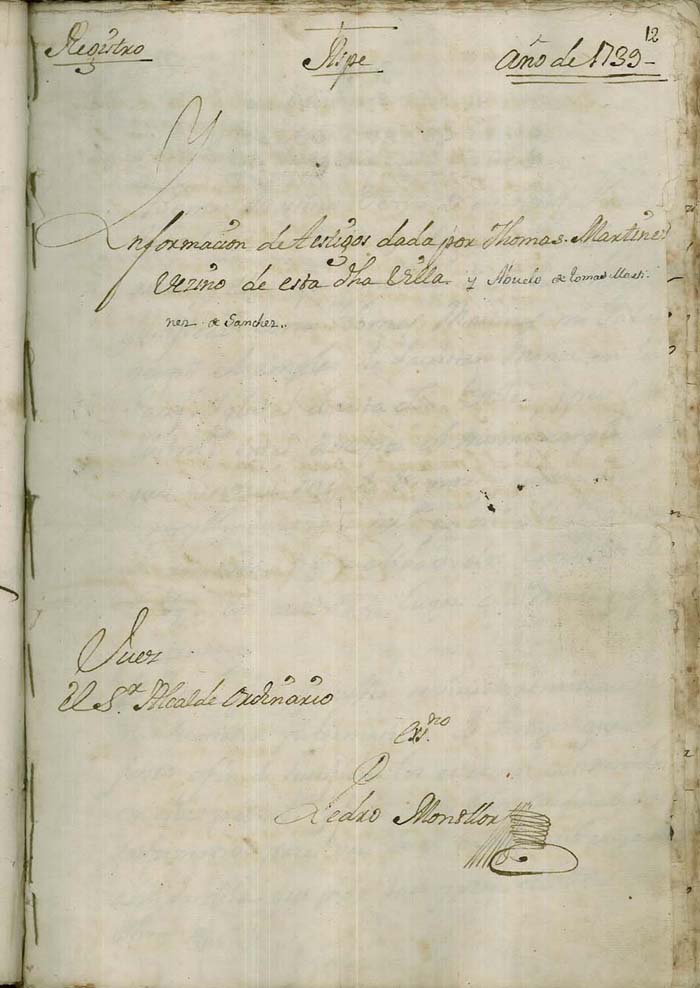 12
Registro Aspe Año de 1739
Ynformacion de testigos dada por Thomas Martinez
Vezino de esta dha Villa y Abuelo de Tomas Marti-
nez de Sanchez..
Juez
El S.r Alcalde Ordinario
Ess.no
Pedro Monsllor